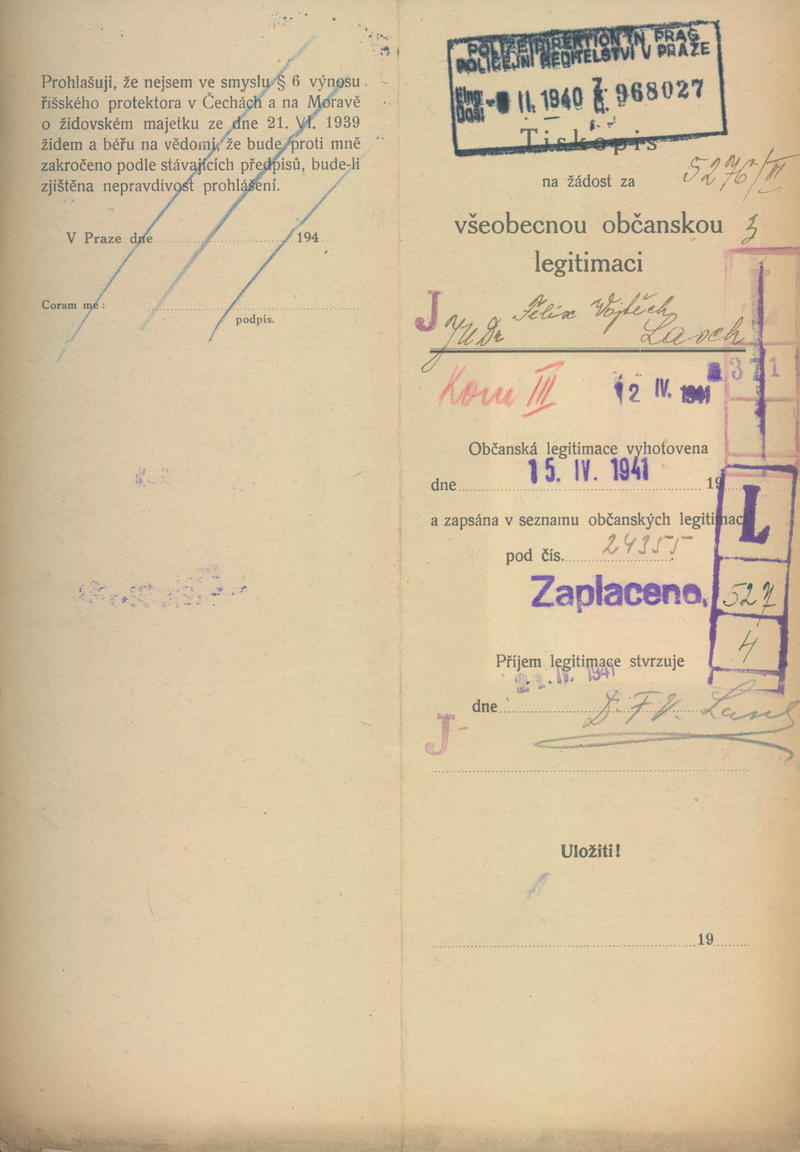 Prohlašuji, že nejsem ve smyslu § 6 výnosu
říšského protektora v Čechách a na Moravě
o židovském majetku ze dne 21. VI. 1939
židem a béřu na vědomí, že bude proti mně
zakročeno podle stávajících předpisů, bude-li
zjištěna nepravdivost prohlášení.
V Praze dne 194
Coram me:
podpis.
POLIZEIDIREKTION IN PRAG
POLICEJNÍ ŘEDITELSTVÍ V PRAZE
Eing. Došl II. 1940 968027
Tiskopis
5276/III
na žádost za
všeobecnou občanskou 3
legitimaci
J
JUDr Felix Vojtěch
Lasch
Kom III 12 IV. 1941
371
Občanská legitimace vyhotovena
15. IV. 1941
dne 19
a zapsána v seznamu občanských legitimací
L
pod čís. 24355
Zaplaceno.
527
4
Příjem legitimace stvrzuje
IV. 1941
dne Dr F V. Lasch
J
Uložiti!
19